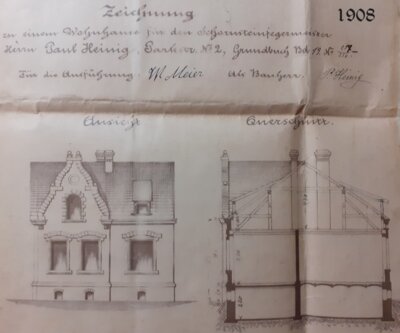 Zeichnung
1908
zu einem Wohnhause für den Schornsteinfegermeister
Herrn Paul Heinig, Parkstr. No 2, Grundbuch Bd 13. No
Für die Ausführung: W. Meier Als Bauherr: P. Heinig
Ansicht. Querschnitt.